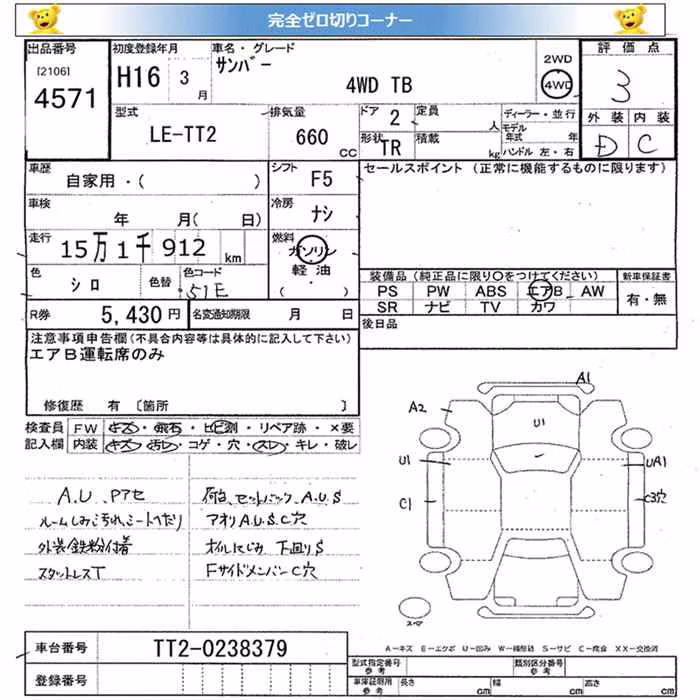 完全ゼロ切りコーナー
出品番号
[2106]
4571
初度登録年月
H16 3 月
車名・グレード
サンバー
4WD TB
2WD
4WD
評価点
3
外装 内装
D C
型式
LE-TT2
排気量
660 cc
ドア 2
定員 人
形状 TR
積載 kg
ディーラー・並行
モデル年式 年
ハンドル 左・右
車歴
自家用・( )
シフト F5
セールスポイント (正常に機能するものに限ります)
車検
年 月( 日)
冷房 ナシ
走行
15万1千912 km
燃料
ガソリン
軽油
( )
色
シロ
色替
色コード
51E
装備品 (純正品に限り○をつけてください)
新車保証書
PS PW ABS エアB AW
SR ナビ TV カワ
有・無
R券 5,430 円
名変通知期限 月 日
後日品
注意事項申告欄(不具合内容等は具体的に記入して下さい)
エアB運転席のみ
修復歴 有 〔箇所 〕
検査員記入欄
FW キズ・飛石・ヒビ割・リペア跡・×要
内装 キズ・汚レ・コゲ・穴・スレ・キレ・破レ
A.U、Pアセ
ルームしみ汚れ、シートへたり
外装鉄粉付着
スタットレスT
荷台、セットバック、A.U.S
アオリA.U.S.C穴
オイルにじみ 下回りS
FサイドメンバーC穴
A1
A2
U1
U1
UA1
C1
C3穴
スペア
A-キズ E-エクボ U-凹み W-補修跡 S-サビ C-腐食 XX-交換済
車台番号
TT2-0238379
登録番号
型式指定番号 参考
類別区分番号 参考
車庫証明用 参考
長さ cm
幅 cm
高さ cm